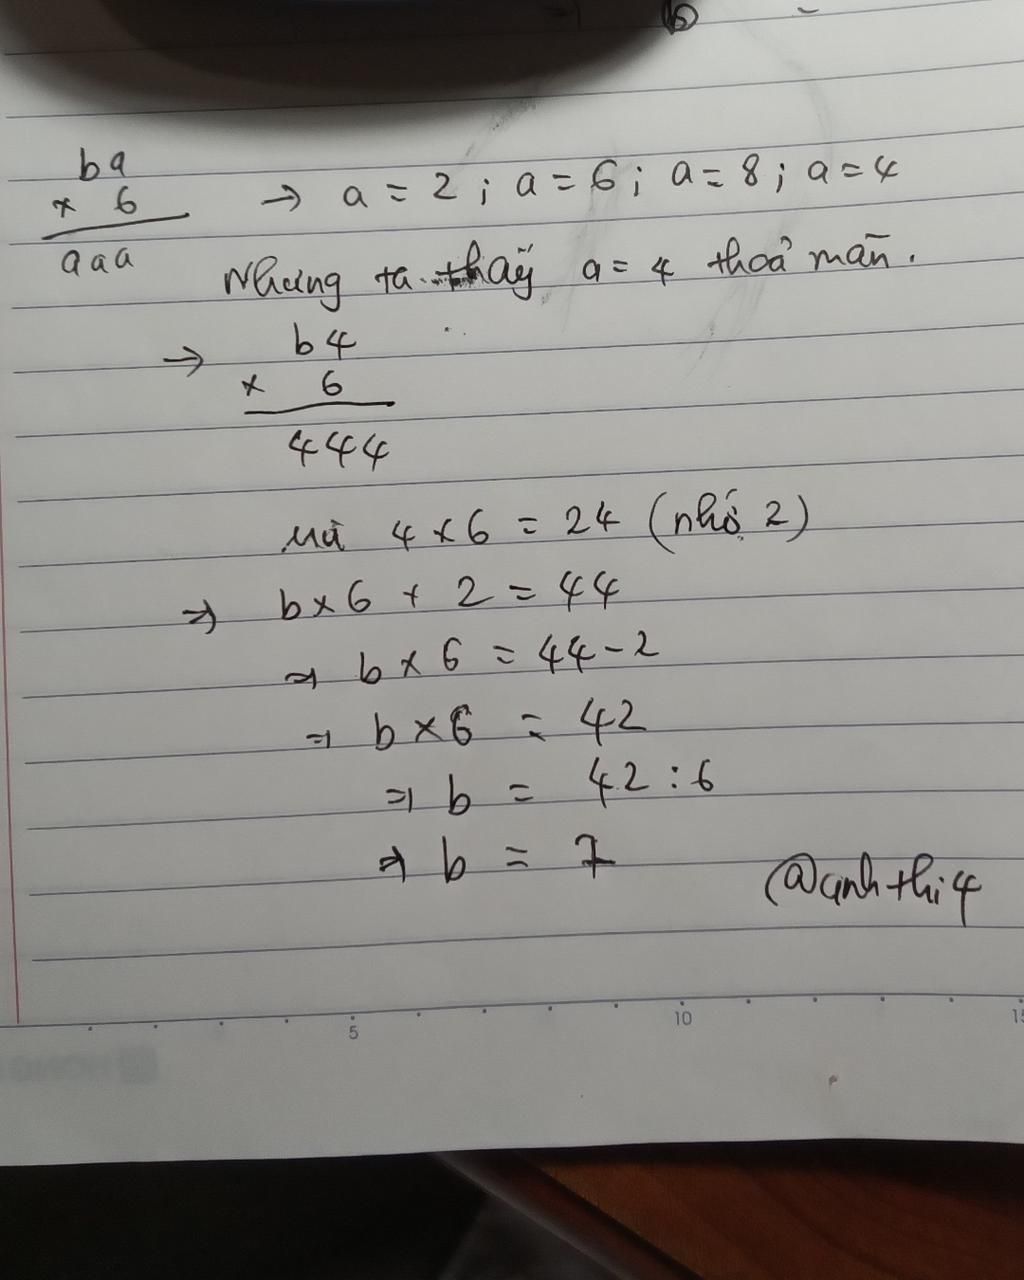 b
ba
x 6
aaa
→ a = 2 ; a = 6 ; a = 8 ; a = 4
Nhưng ta thấy a = 4 thoả mãn.
→ b4
x 6
444
Mà 4 x 6 = 24 (nhớ 2)
⇒ b x 6 + 2 = 44
⇒ b x 6 = 44 - 2
⇒ b x 6 = 42
⇒ b = 42 : 6
⇒ b = 7
@anhthi4
5 10 15